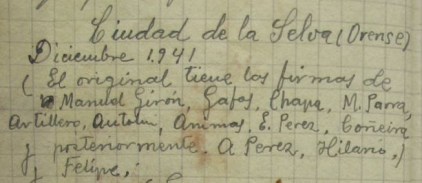 Ciudad de la Selva (Orense)
Diciembre 1.941
( El original tiene las firmas de
Manuel Girón, Gafas, Chapa, M. Parra,
Artillero, Antolin, Animas, E. Perez, Coñeira
y posteriormente, A Perez, Hilario,)
y Felipe,